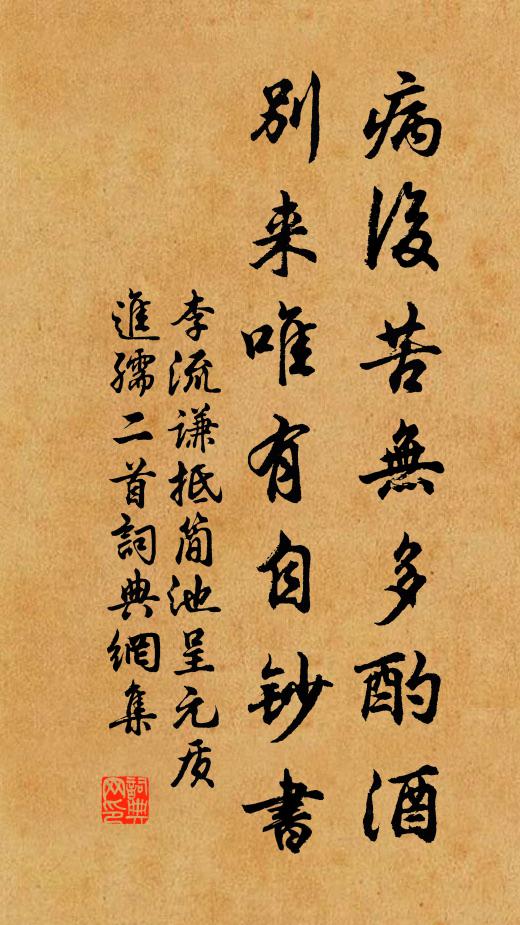 病後苦無多酌酒
別来唯有自鈔書
李流謙抵簡池呈元质
進孺二首詞典網集
詞典
网印